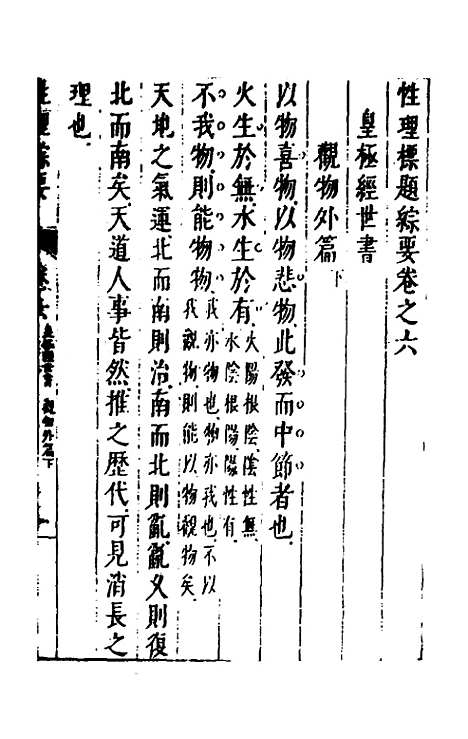 性理標題綜要卷之六
皇極經世書
觀物外篇下
以物喜物以物悲物此發而中節者也
火生於無水生於有火陽根陰陰性無
水陰根陽陽性有
不我物則能物物我亦物也物亦我也不以
我觀物則能以物觀物矣
天地之氣運北而南則治南而北則亂亂久則復
北而南矣天道人事皆然推之歷代可見消長之
理也
性理綜要
卷六
皇極經世書
觀物外篇下